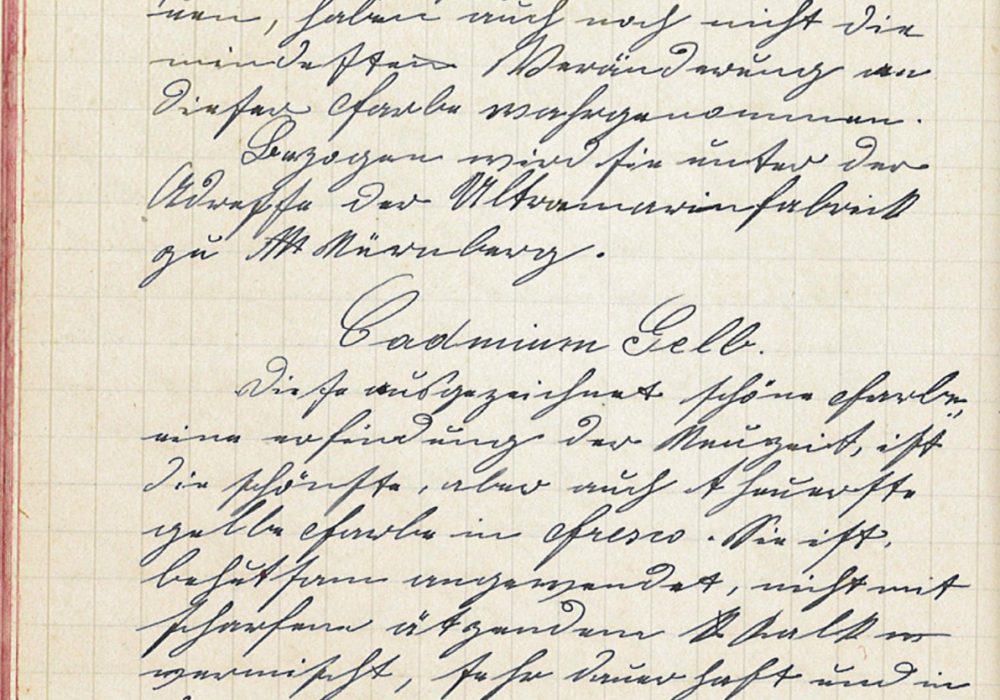 nen, haben auch noch nicht die
mindesten Veränderung an
dieser Farbe wahrgenommen.
Bezogen wird sie unter der
Adresse der Ultramarinfabrick
zu Nürnberg.
Cadmium Gelb.
Diese ausgezeichnet schöne Farbe,
eine erfindung der Neuzeit, ist
die schönste, aber auch theuerste
gelbe Farbe in Fresco. Sie ist,
behutsam angewendet, nicht mit
scharfem ätzendem Kalk
vermischt, sehr dauerhaft und in